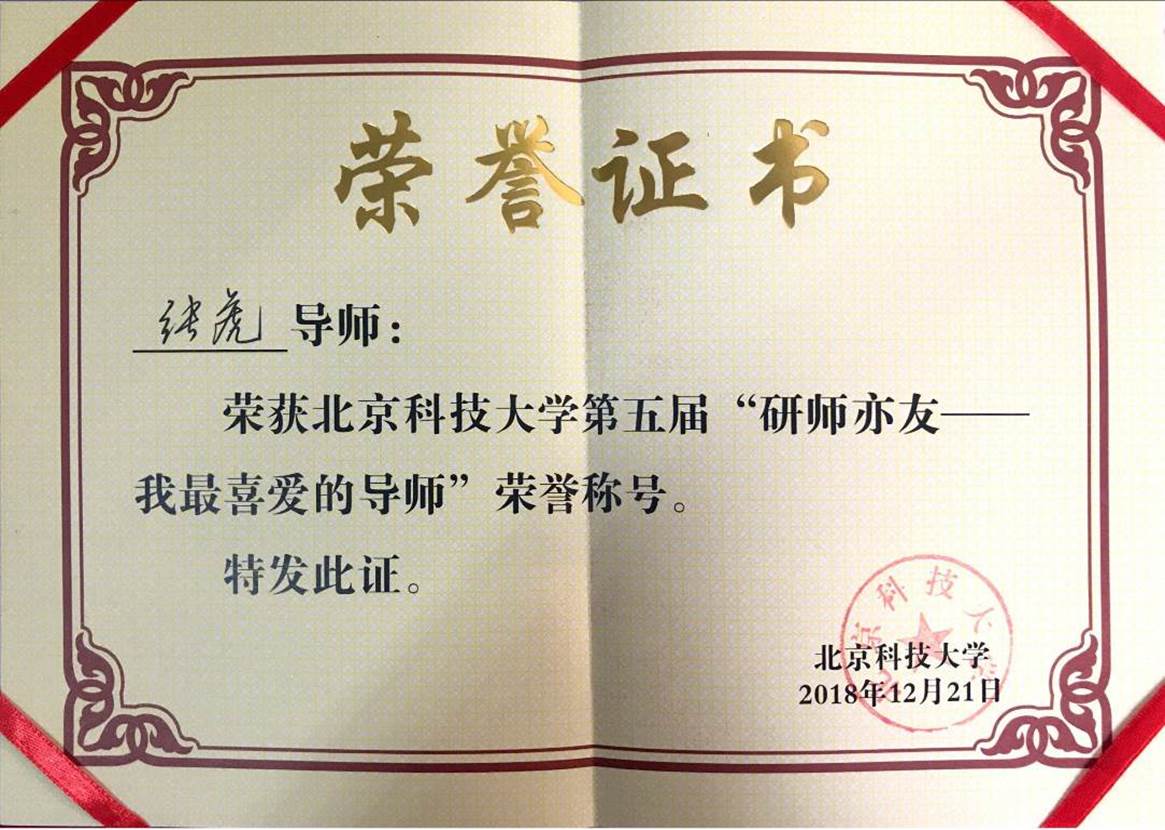 荣誉证书
张虎导师：
荣获北京科技大学第五届“研师亦友——
我最喜爱的导师”荣誉称号。
特发此证。
北京科技大学
北京科技大学
2018年12月21日